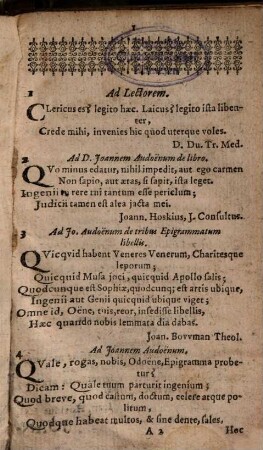 1
Ad Lectorem.
Clericus es? legito hæc. Laicus? legito ista liben-
ter,
Crede mihi, invenies hic quod uterque voles.
D. Du. Tr. Med.
2
Ad D. Joannem Audoënum de libro.
Quo minus edatur, nihil impedit, aut ego carmen
Non sapio, aut æras, si sapit, ista leget.
Ingenii tu rere mi tantum esse periclum;
Judicii tamen est alea jacta mei.
Joann, Hoskius, J. Consultus.
3
Ad Jo. Audoënum de tribus Epigrammatum
libellis.
Quicqvid habent Veneres Venerum, Charitesque
leporum;
Quicquid Musa joci, quicquid Apollo salis;
Quodcunque est Sophiæ, quodcunq; est artis ubique,
Ingenii aut Genii quicquid ubique viget;
Omne id, Oëne, tuis, reor, insedisse libellis,
Hæc quando nobis lemmata dia dabas.
Joan. Bovvman Theol.
4
Ad Joannem Audoënum.
Quale, rogas, nobis, Odoëne, Epigramma probe-
tur;
Dicam: Quale tuum parturit ingenium;
Quod breve, quod castum, doctum, celere atque po-
litum,
Quodque habeat multos, & sine dente, sales.
A 2 Hoc